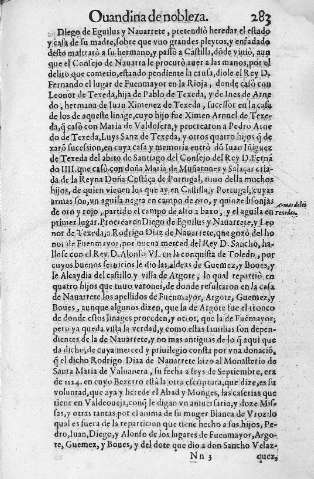 Ouandina de nobleza. 283
Diego de Eguilus y Nauarrete, pretendiò heredar el estado
y casa de su madre, sobre que vuo grandes pleytos, y enfadado
desto maltratò a su hermano, y passò a Castilla, dóde viuiò, aun
que el Consejo de Nauarra le procurò auer a las manos, por el
delito que cometio, estando pendiente la causa, diole el Rey D.
Fernando el lugar de Fuenmayor en la Rioja, donde casó con
Leonor de Texeda, hija de Pablo de Texeda, y de Ines de Arne
do, hermana de Iuan Ximenez de Texeda, sucessor en la casa
de los de aqueste linage, cuyo hijo fue Ximen Arnuel de Texe
da, q̃ casó con Maria de Valdosera, y procrearon a Pedro
de Texeda, Luys Sanz de Texeda, y otros quatro hijos q̃ de
xarõ sucession, en cuya casa y memoria entrò dõ Iuan Iñiguez
de Texeda del abito de Santiago del Consejo del Rey D. Fernã
do IIII. que casò con doña Maria de Muñatones y Salazar cria
da de la Reyna Doña Costãça de Portugal, tuuo della muchos
hijos, de quien vienen los que ay en Castilla, y Portugal, cuyas
armas son, vn aguila negra en campo de oro, y quinze lisonjas
de oro y rojo, partido el campo de alto a baxo, y el aguila en
primer lugar. Procrearon Diego de Eguilus y Nauarrete, y Leo
nor de Texeda, a Rodrigo Diaz de Nauarrete, que gozò del ho
nor de Fuenmayor, por nueua merced del Rey D. Sancho, ha-
llose con el Rey D. Alonso VI. en la conquista de Toledo, por
cuyos buenos seruicios le dio las aldeas de Guemez, y Boues, y
le Alcaydia del castillo y villa de Argote, lo qual repartiò en
quatro hijos que tuuo varones, de donde resultaron en la casa
de Nauarrete los apellidos de Fuenmayor, Argote, Guemez, y
Boues, aunque algunos dizen, que la de Argote fue el tronco
de donde estos linages proceden, y otros, que la de Fuenmayor,
pero ya queda vista la verdad, y como estas familias son depen-
dientes de la de Nauarrete, y no mas antiguas de lo q̃ aqui que
da dicho, de cuya merced y priuilegio consta por vna donaciõ,
q̃ el dicho Rodrigo Diaz de Nauarrete hizo al Monasterio de
Santa Maria de Valuanera, su fecha a seys de Septiembre, era
de 1124. en cuyo Bezerro està la otra escriptura, que dize, es su
voluntad, que aya y herede el Abad y Monges, las caserias que
tiene en Valdeoueja, con q̃ le digan vn aniuersario, y doze Mis-
sas, y otras tantas por el anima de su muger Bianca de Vrozlo
qual es fuera de la reparticion que tiene hecho a sus hijos, Pe-
dro, Iuan, Diego, y Alonso de los lugares de Fuenmayor, Argo-
te, Guemez, y Boues, y del dote que dio a don Sancho Velaz-
Nn 3 quez,
Armas de los
Texedas.